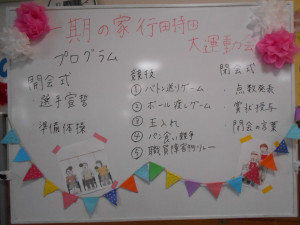 一期の家行田持田
大運動会
プログラム
開会式
選手宣誓
・準備体操
競技
① バトン送りゲーム
② ボール渡しゲーム
③ 玉入れ
④ パン食い競争
⑤ 職員障害物リレー
閉会式
・点数発表
・賞状授与
・閉会の言葉